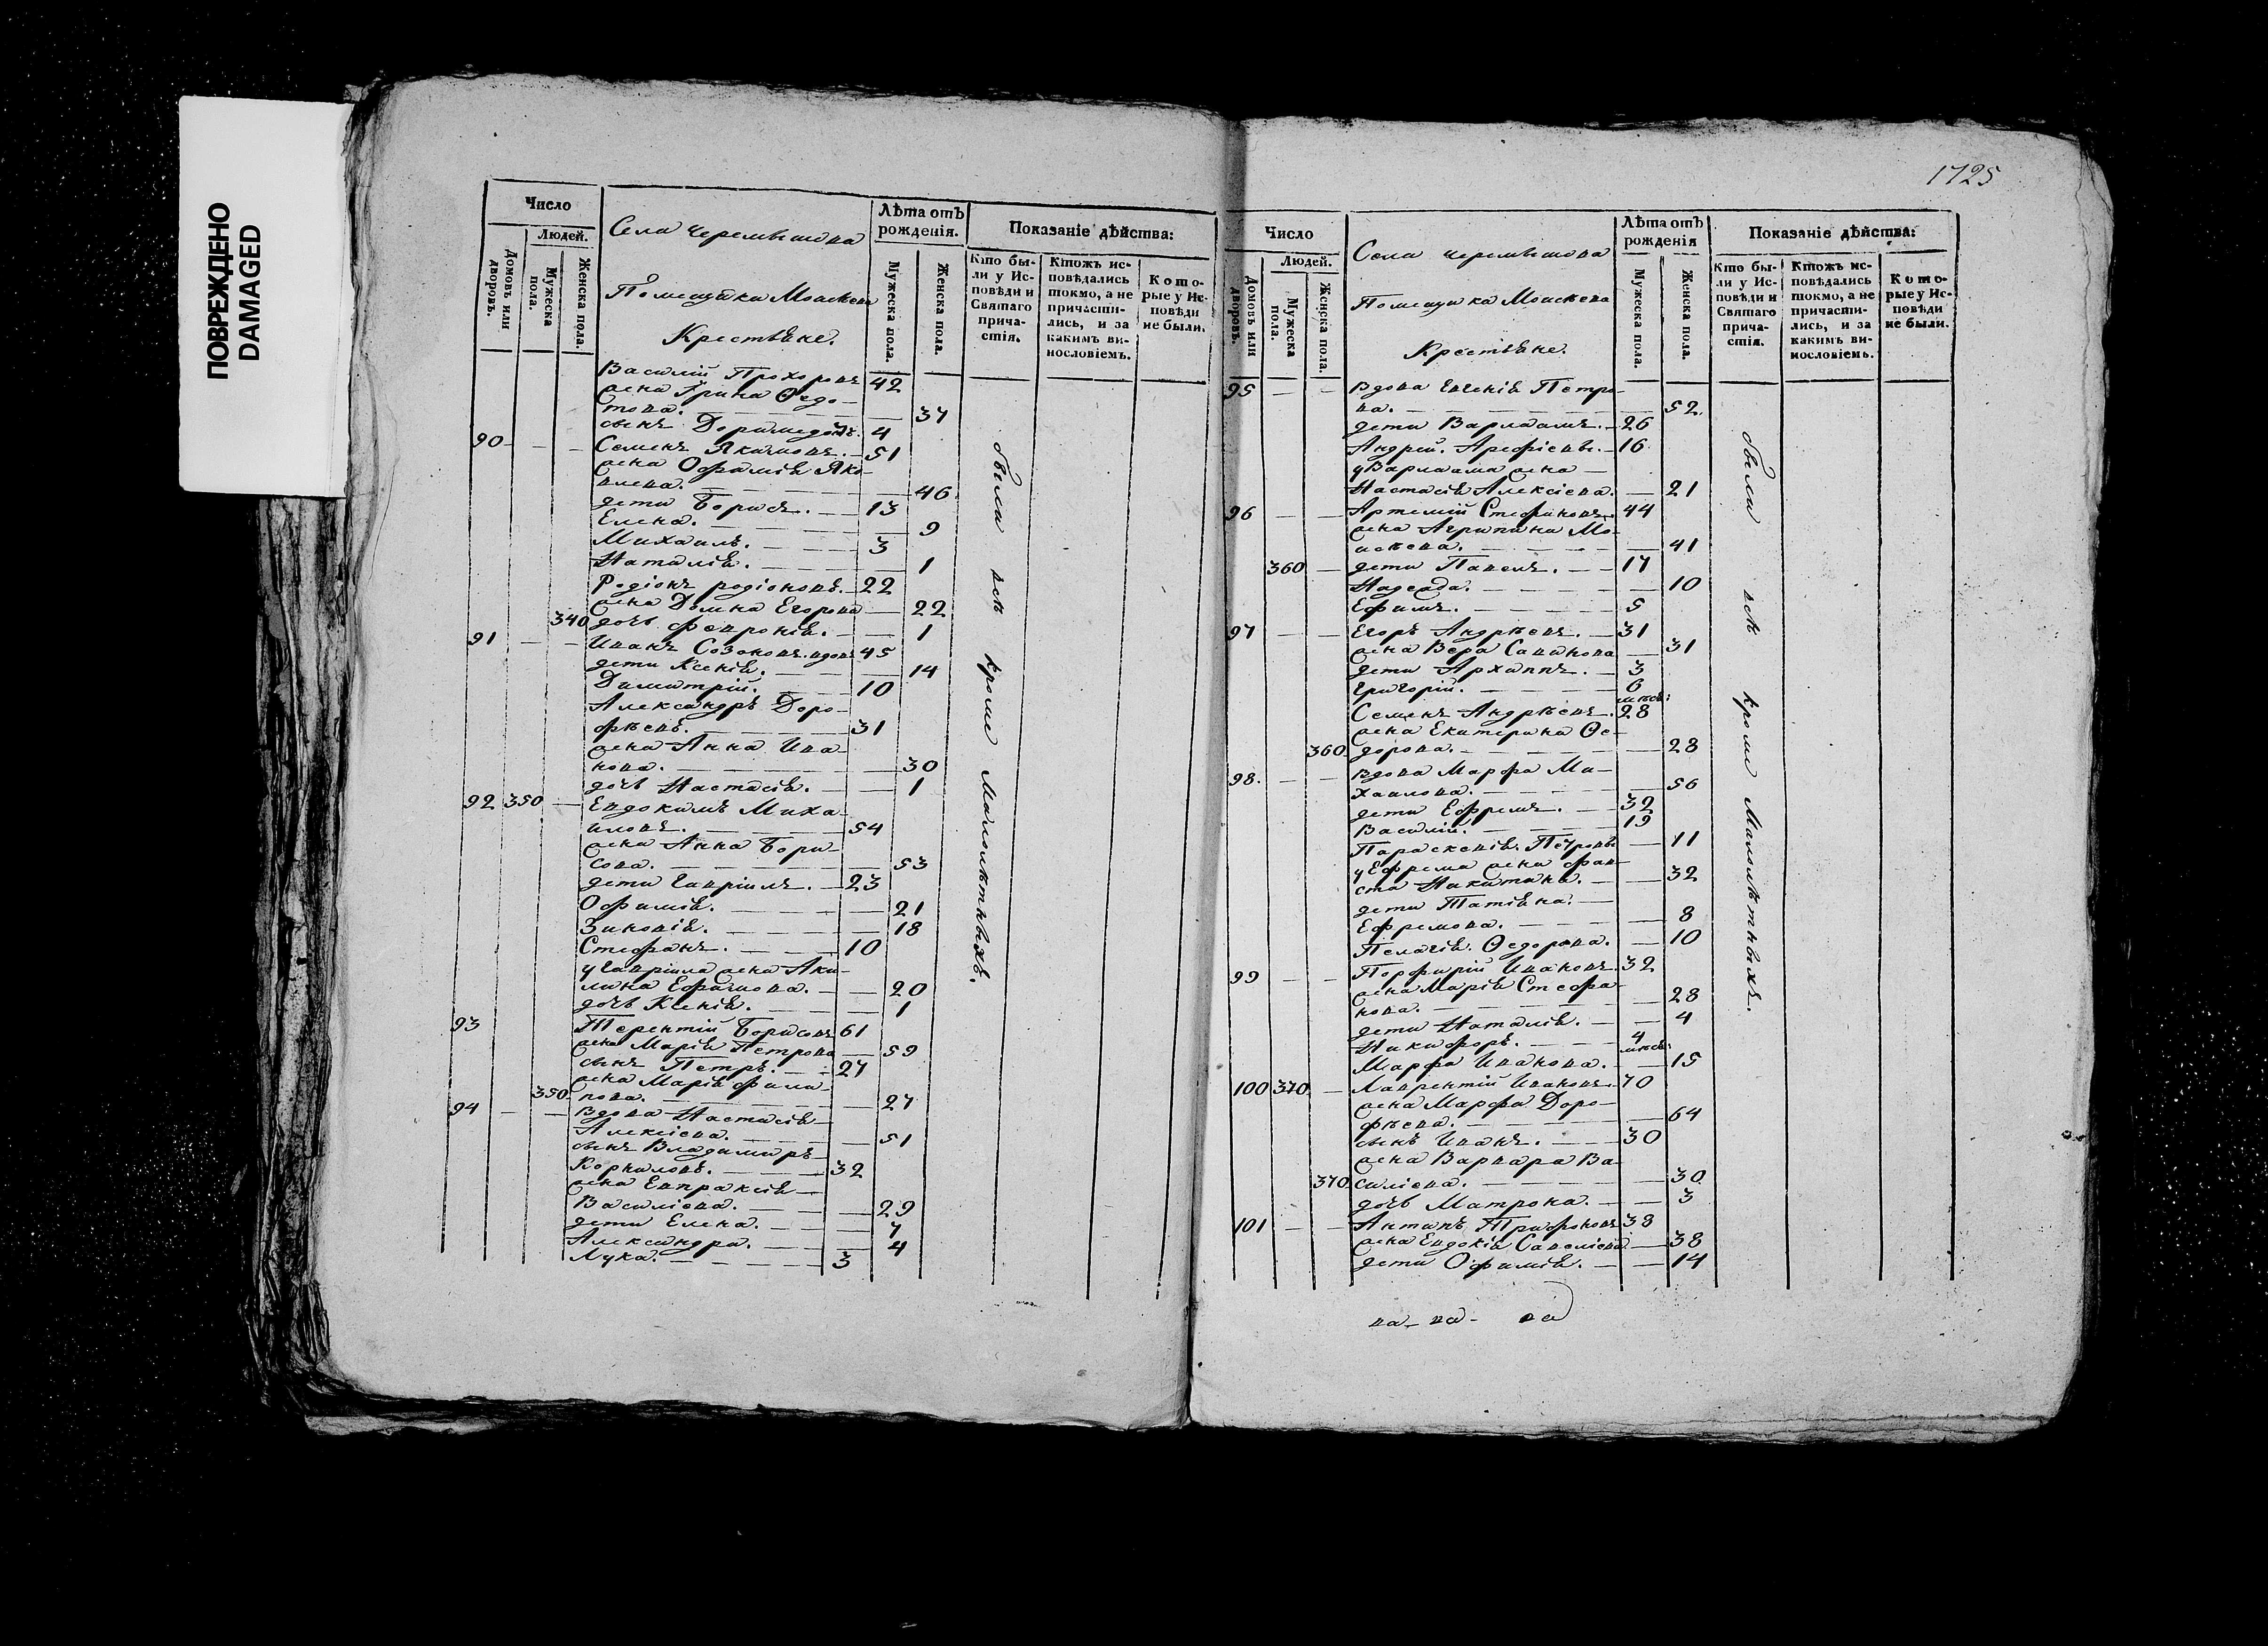 ПОВРЕЖДЕНО
DAMAGED
Число
Людей.
Домовъ или дворовъ.
Мужеска пола.
Женска пола.
Села Черемышова
Помещика Моисѣева
Крестьяне.
Лѣта отъ рожденія.
Мужеска пола.
Женска пола.
Показаніе дѣйства:
Кто бы-
ли у Ис-
повѣди и
Святаго
прича-
стія.
Ктожъ ис-
повѣдались
токмо, а не
причасти-
лись, и за
какимъ ви-
нословіемъ.
Кото-
рые у Ис-
повѣди
не были.
Василій Прохоровъ 42
жена Ирина Ѳедо-
това. 37
сынъ Доримедонтъ. 4
90 Семенъ Якимовъ. 51
жена Офимія Яко-
влева. 46
дети Борисъ. 13
Елена. 9
Михаилъ. 3
Наталія. 1
Родіонъ родіоновъ. 22
жена Домна Егорова 22
340 дочь Февронія. 1
91 Иванъ Созоновъ. вдовъ 45
дети Ксенія. 14
Димитрій. 10
Александръ Доро-
фѣевъ. 31
жена Анна Ива-
нова. 30
дочь Настасія. 1
92 350 Евдокимъ Миха-
иловъ. 54
жена Анна Бори-
сова. 53
дети Гавріилъ. 23
Офимія. 21
Зиновія. 18
Стефанъ. 10
у Гавріила жена Аку-
лина Ефимова. 20
дочь Ксенія. 1
93 Терентій Борисовъ 61
жена Марія Петрова 59
сынъ Петръ. 27
жена Марія Фили-
350 пова. 27
94 вдова Настасія
Алексіева. 51
сынъ Владимиръ
Корниловъ. 32
жена Евпраксія
Василіева. 29
дети Елена. 7
Александра. 4
Лука. 3
были всѣ кроме Малолѣтныхъ.
1725
Число
Людей.
Домовъ или дворовъ.
Мужеска пола.
Женска пола.
Села Черемышова
Помещика Моисѣева
Крестьяне.
Лѣта отъ рожденія
Мужеска пола.
Женска пола.
Показаніе дѣйства:
Кто бы-
ли у Ис-
повѣди и
Святаго
прича-
стія.
Ктожъ ис-
повѣдались
токмо, а не
причасти-
лись, и за
какимъ ви-
нословіемъ.
Кото-
рые у Ис-
повѣди
не были.
95 вдова Евгенія Петро-
ва. 52
дети Варлаамъ. 26
Андрей. Арефіевы. 16
у Варлаама жена
Настасія Алексіева. 21
96 Артемій Стефановъ. 44
жена Агрипина Мо-
исѣева. 41
360 дети Павелъ. 17
Надежда. 10
Ефимъ. 5
97 Егоръ Андрѣевъ. 31
жена Вера Саванова 31
дети Архиппъ. 3
Григорій. 6 мѣся:
Семенъ Андрѣевъ. 28
жена Екатерина Ѳе-
360 дорова. 28
98. вдова Марфа Ми-
хаилова. 56
дети Ефремъ. 32
Василій. 19
Параскевія. Петровы 11
у Ефрема жена Фав-
ста Никитина. 32
дети Татіяна.
Ефремова. 8
Пелагія. Ѳедорова. 10
99 Порфирій Ивановъ 32
жена Марія Стефа-
нова. 28
дети Наталія. 4
Никифоръ. 4 мѣся:
Марфа Иванова. 15
100 370 Лаврентій Ивановъ 70
жена Марфа Доро-
фѣева. 64
сынъ Иванъ. 30
жена Варвара Ва-
370 силіева. 30
дочь Матрона. 3
101 Антипъ Трифоновъ 38
жена Евдокія Савеліева 38
дети Офимія. 14
были всѣ кроме Малолѣтныхъ.